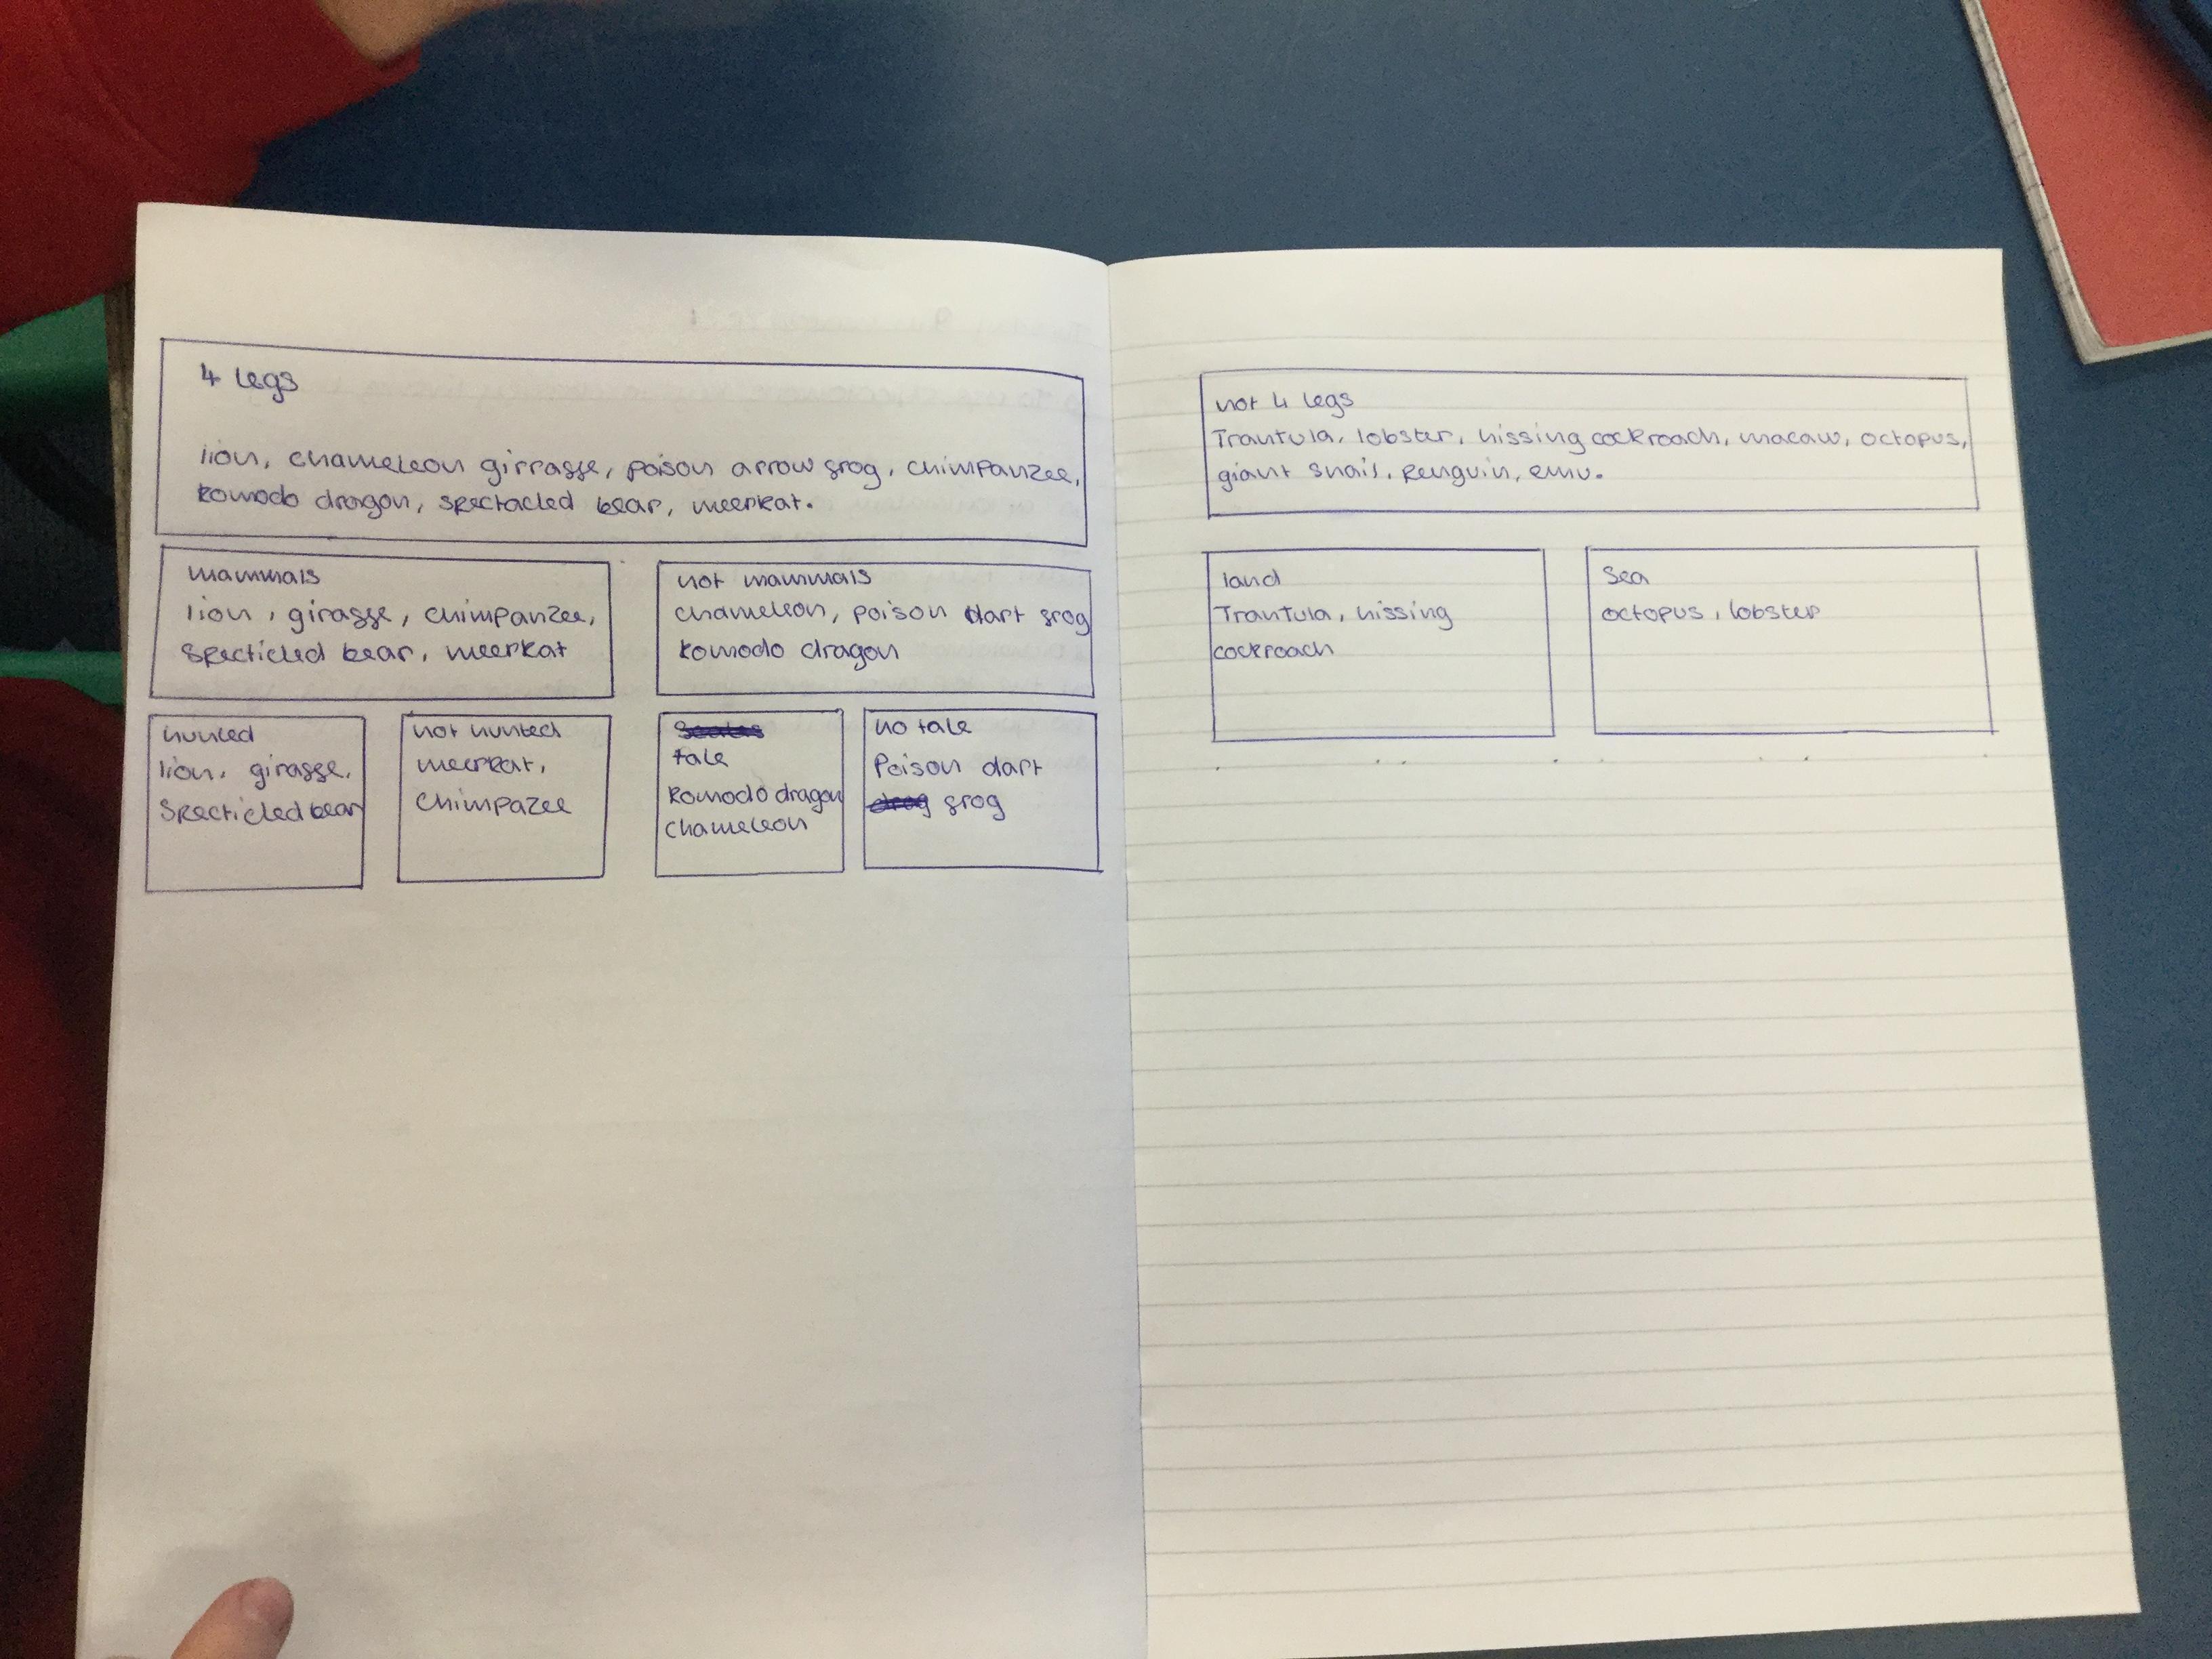 4 legs
lion, chameleon girrasse, poison arrow srog, chimpanzee,
komodo dragon, spectacled bear, meerkat.
mammals
lion, girasse, chimpanzee,
specticled bear, meerkat
not mammals
chameleon, poison dart srog
komodo dragon
hunted
lion, girasse,
specticled bear
not hunted
meerkat,
chimpazee
tale
komodo dragon
chameleon
no tale
Poison dart
srog
not 4 legs
Trantula, lobster, hissing cockroach, macaw, octopus,
giant snail, penguin, emu.
land
Trantula, hissing
cockroach
Sea
octopus, lobster